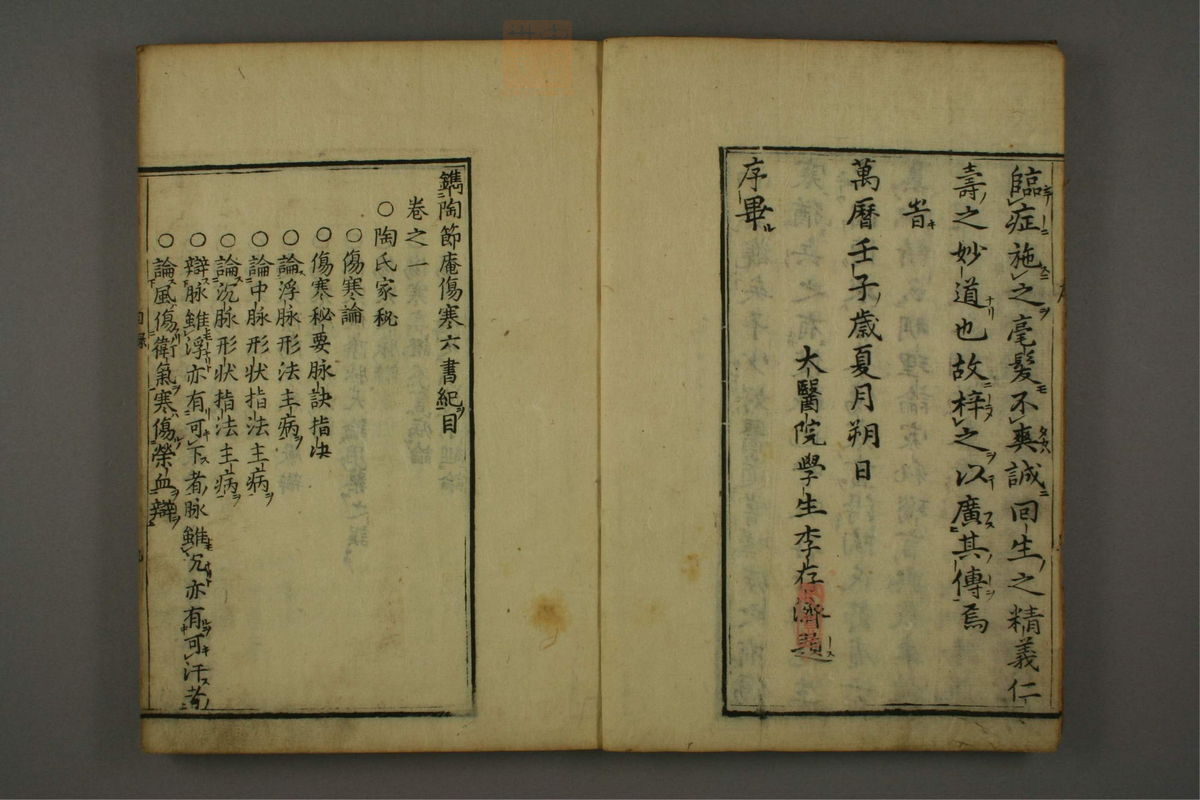 臨症施之毫髮不爽誠回生之精義仁
壽之妙道也故梓之以廣其傳焉
旹
萬曆壬子歲夏月朔日
太醫院學生李存濟題
序畢
鐫陶節庵傷寒六書紀目
卷之一
○陶氏家秘
○傷寒論
○傷寒秘要脉訣指决
○論浮脉形法主病
○論中脉形状指法主病
○論沉脉形状指法主病
○辯脉雖浮亦有可下者脉雖沉亦有可汗者
○論風傷衛氣寒傷榮血辯
目錄